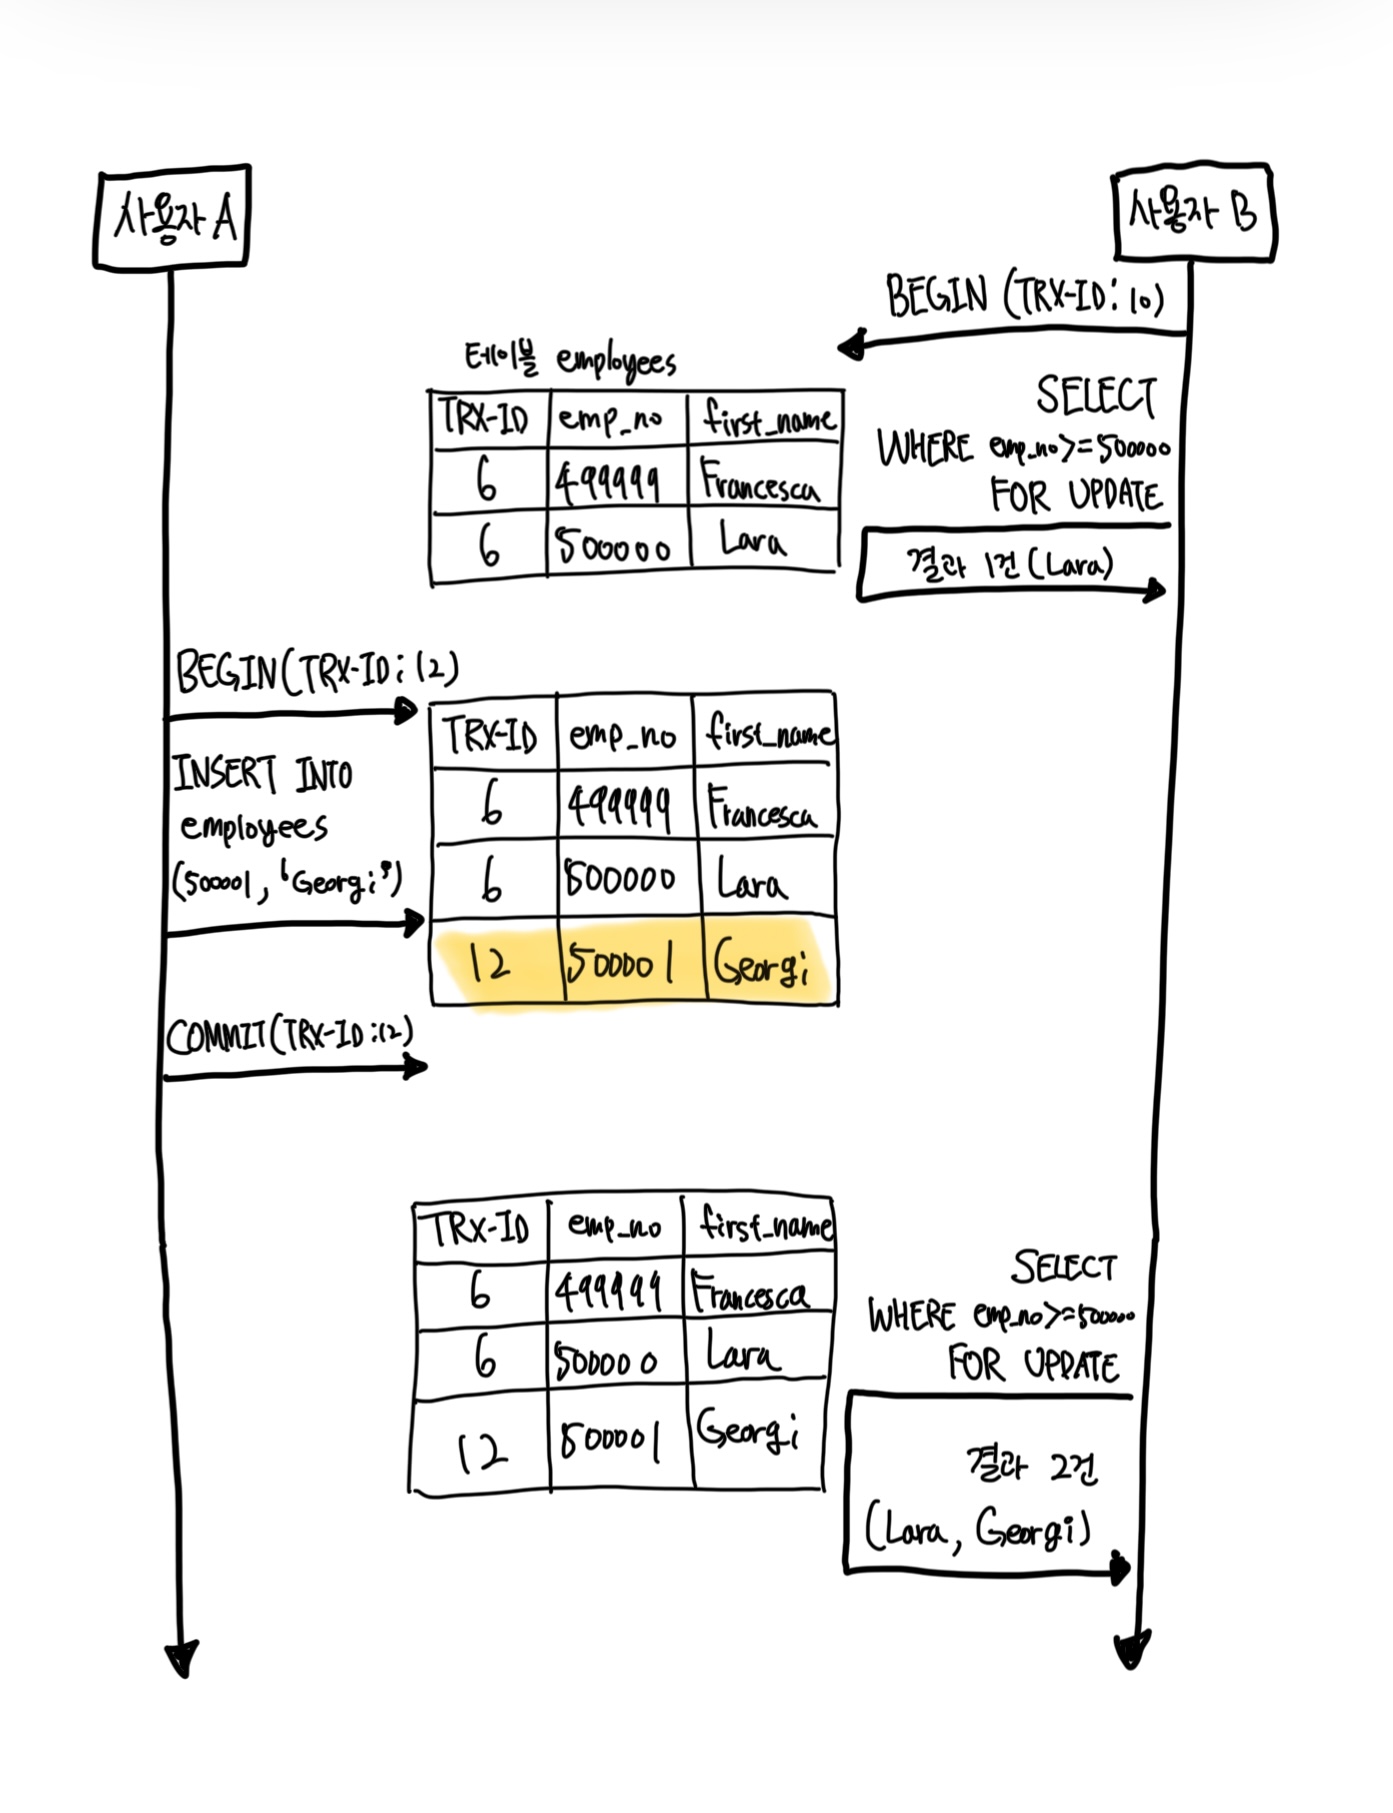 사용자 A
사용자 B
BEGIN (TRX-ID: 10)
테이블 employees
TRX-ID emp_no first_name
6 499999 Francesca
6 500000 Lara
SELECT
WHERE emp_no>=500000
FOR UPDATE
결과 1건 (Lara)
BEGIN(TRX-ID: 12)
INSERT INTO
employees
(500001, 'Georgi')
TRX-ID emp_no first_name
6 499999 Francesca
6 500000 Lara
12 500001 Georgi
COMMIT(TRX-ID:12)
TRX-ID emp_no first_name
6 499999 Francesca
6 500000 Lara
12 500001 Georgi
SELECT
WHERE emp_no>=500000
FOR UPDATE
결과 2건
(Lara, Georgi)